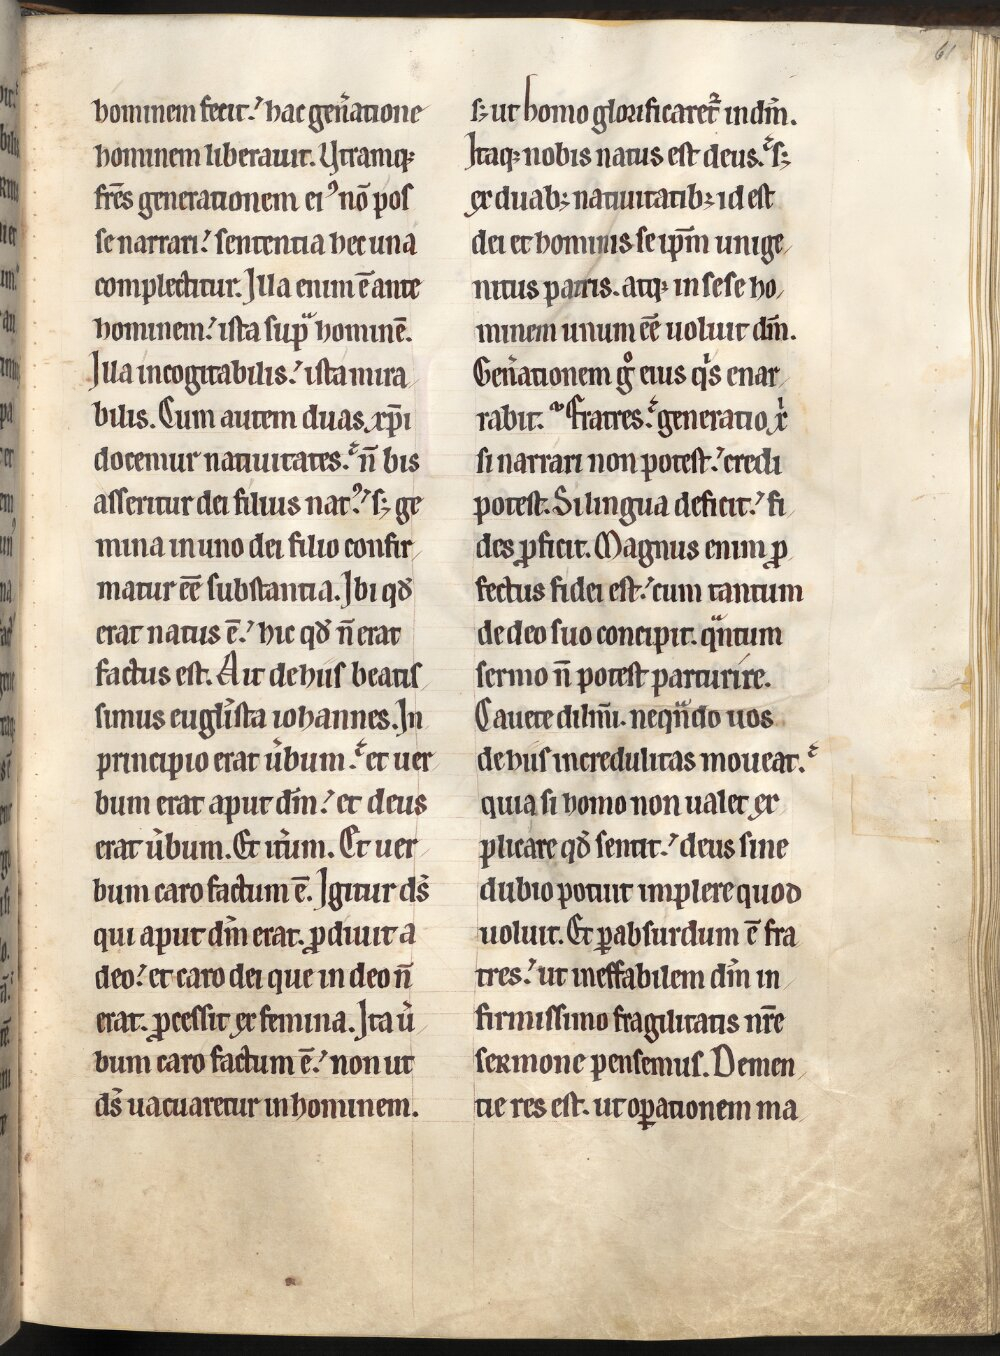 61
hominem fecit.᾿ hac gen̄atione
hominem liberauit. Utramq;
fr̄es generationem ei᾿ nō pos
se narrari.᾿ sententia hec una
complectitur. Illa enim ē ante
hominem.᾿ ista sup̄ hominē.
Illa incogitabilis.᾿ ista mira
bilis. Cum autem duas xp̄i
docemur natiuitates.᾿ n̄ bis
asseritur dei filius nat᾿.᾿ s; ge
mina in uno dei filio confir
matur eē substantia. Ibi qđ
erat natus ē.᾿ hic qđ n̄ erat
factus est. Ait de hiis beatis
simus eugl̄ista iohannes. In
principio erat u̓bum.᾿ et uer
bum erat aput dm̄.᾿ et deus
erat u̓bum. Et it̓um. Et uer
bum caro factum ē. Igitur ds̄
qui aput dm̄ erat. ꝓdiuit a
deo.᾿ et caro dei que in deo n̄
erat. ꝓcessit ex femina. Ita u̓
bum caro factum ē.᾿ non ut
ds̄ uacuaretur in hominem.
s; ut homo glorificaret᾿ in dm̄.
Itaq; nobis natus est deus.᾿ s;
ex duab; natiuitatib; id est
dei et hominis se ip̄m unige
nitus patris. atq; in sese ho
minem unum eē uoluit dm̄.
Gen̄ationem gͦ eius qͥs enar
rabit. Fratres.᾿ generatio xͥ
si narrari non potest.᾿ credi
potest. Si lingua deficit.᾿ fi
des ꝓficit. Magnus enim ꝓ
fectus fidei est.᾿ cum tantum
de deo suo concipit. qͣntum
sermo n̄ potest parturire.
Cauete dilm̄i. neqͣndo uos
de hiis incredulitas moueat.᾿
quia si homo non ualet ex
plicare qđ sentit.᾿ deus sine
dubio potuit implere quod
uoluit. Et ꝑabsurdum ē fra
tres.᾿ ut ineffabilem dm̄ in
firmissimo fragilitatis nr̄e
sermone pensemus. Demen
tie res est. ut oꝑationem ma